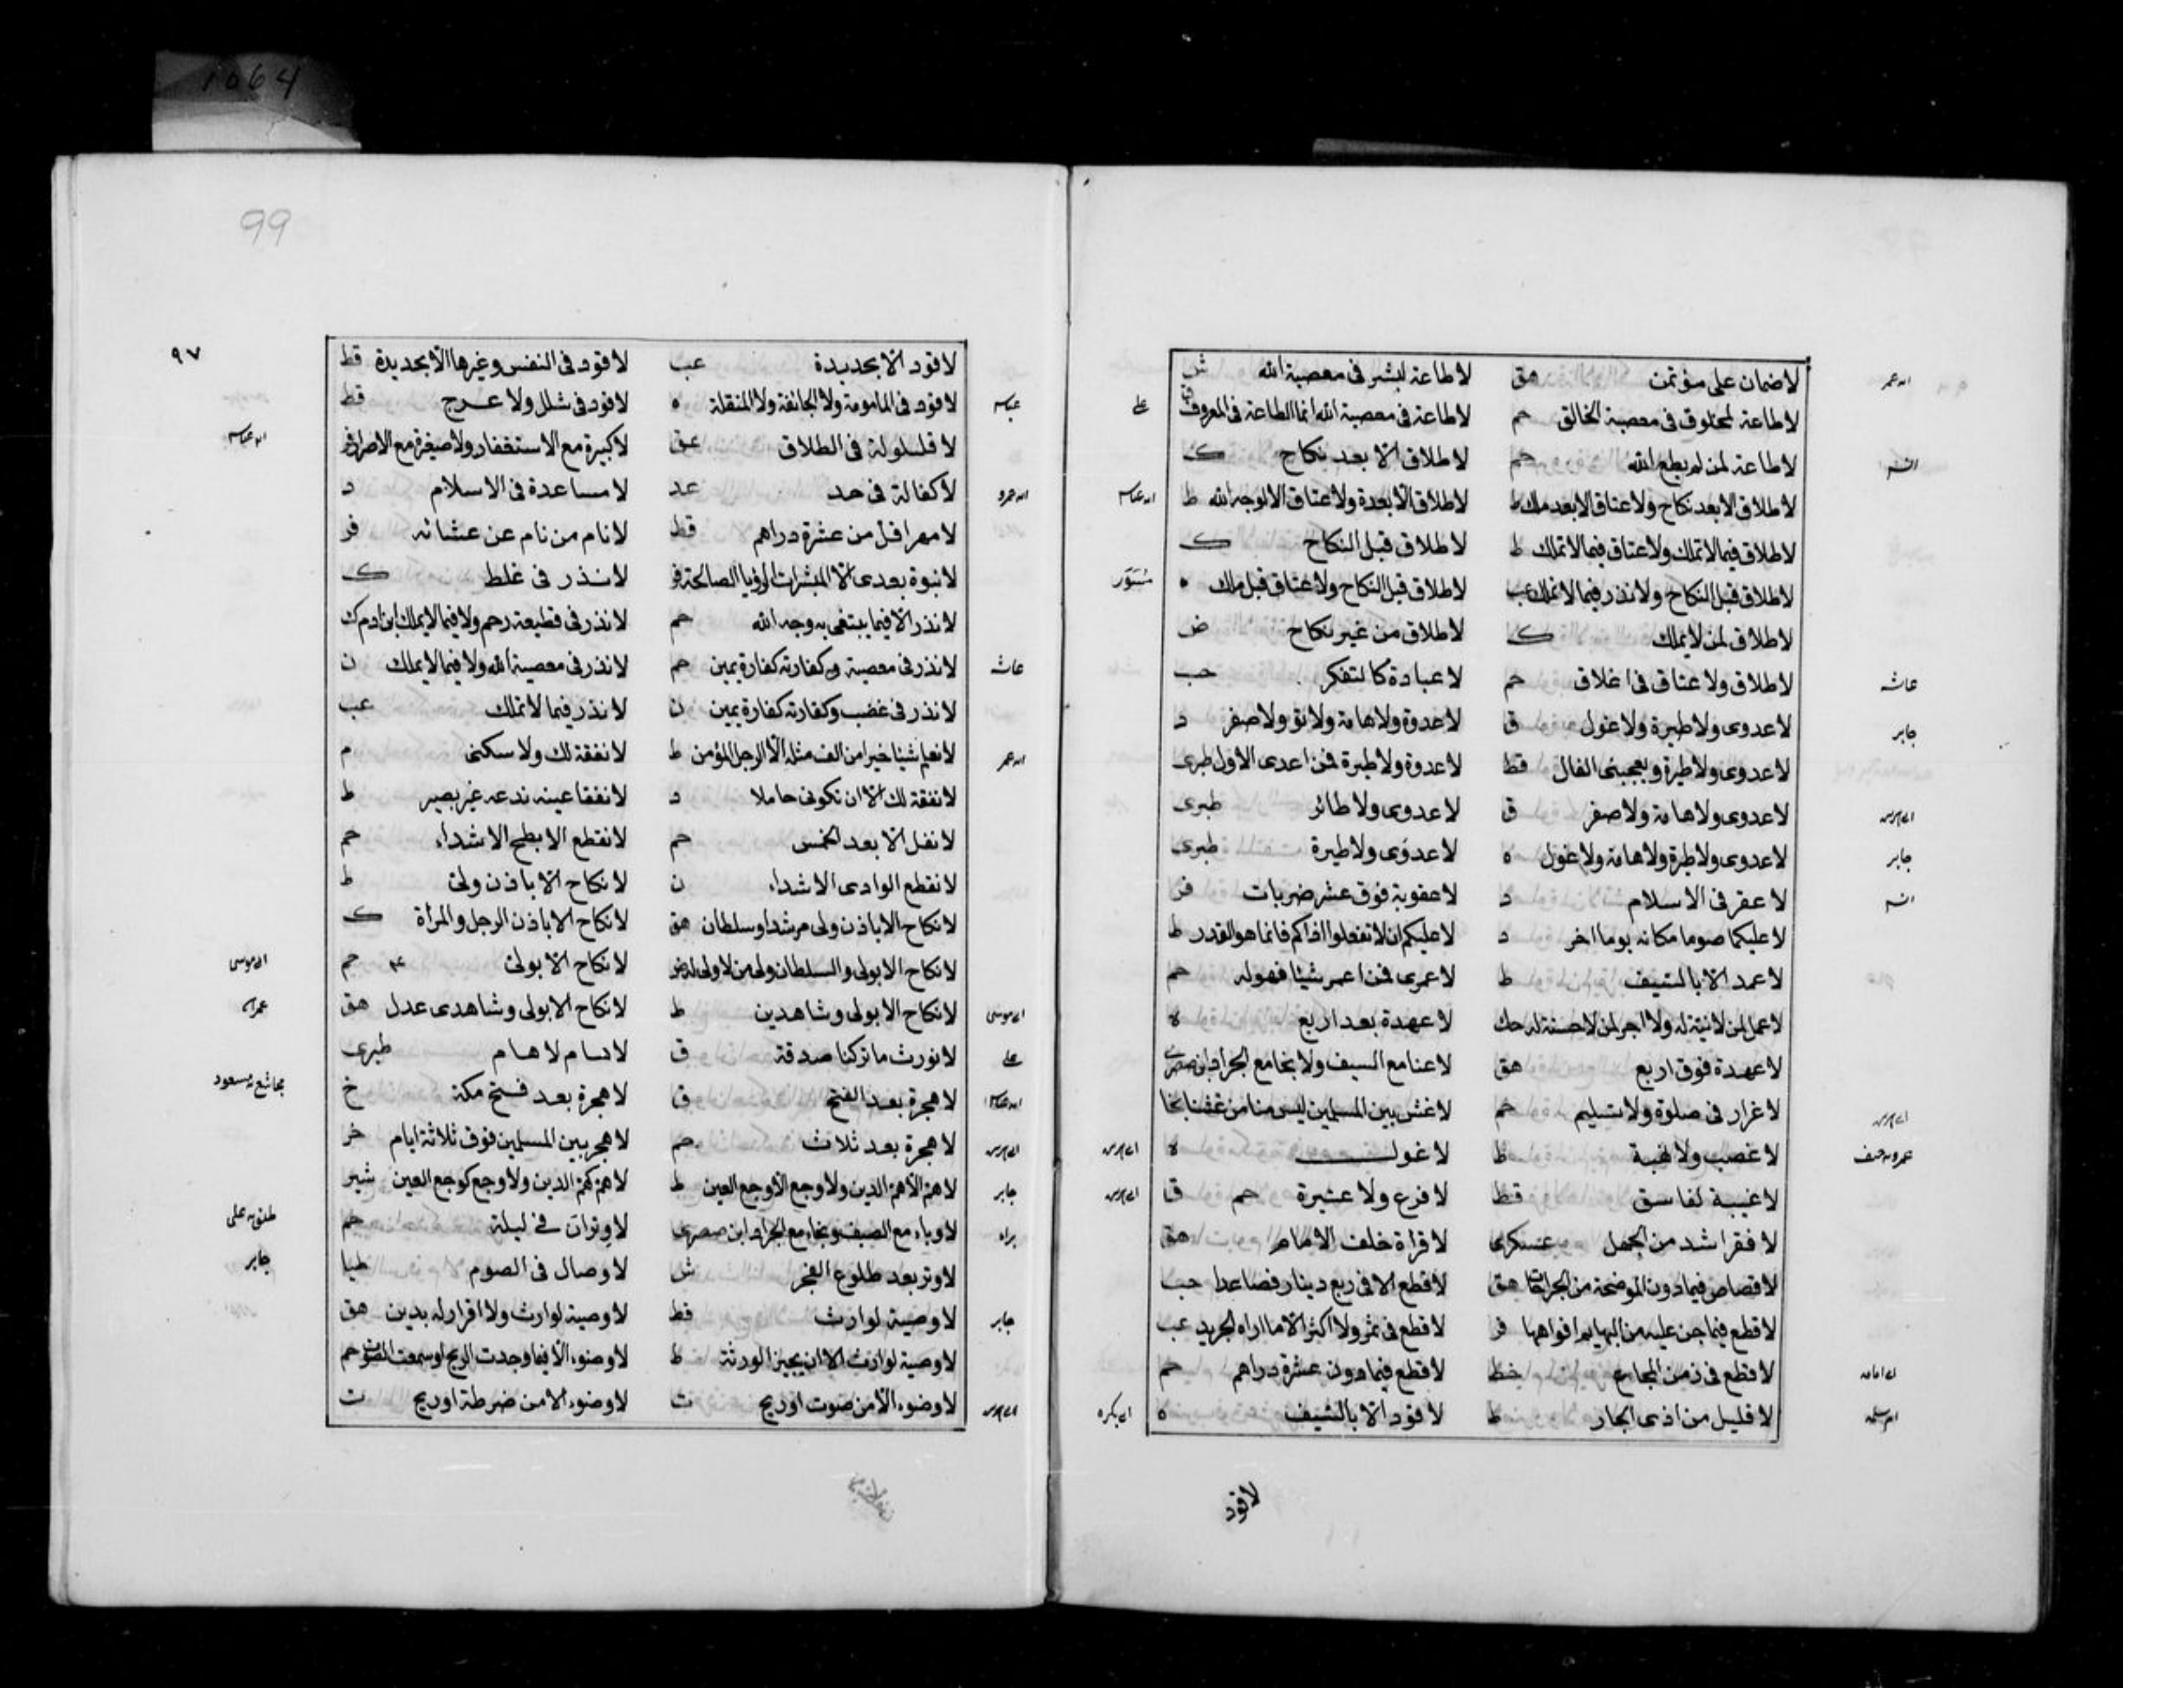 1064
لا ضمان على مؤتمن هق لا طاعة لبشر فى معصية الله ش
لا طاعة لمخلوق فى معصية الخالق حم لا طاعة فى معصية الله انما الطاعة فى المعروف ق
لا طاعة لمن لم يطع الله حم لا طلاق الا بعد نكاح ك
لا طلاق الا بعد نكاح ولا عتاق الا بعد ملك ط لا طلاق الا لعدة ولا عتاق الا لوجه الله ط
لا طلاق فيما لا تملك ولا عتاق فيما لا تملك ط لا طلاق قبل النكاح ك
لا طلاق قبل النكاح ولا نذر فيما لا تملك عب لا طلاق قبل النكاح ولا عتاق قبل ملك ه
لا طلاق لمن لا يملك ك لا طلاق من غير نكاح ض
لا طلاق ولا عتاق فى اغلاق حم لا عبادة كالتفكر حب
لا عدوى ولا طيرة ولا غول ق لا عدوة ولا هامة ولا نؤ ولا صفر د
لا عدوى ولا طيرة ويعجبنى الفال قط لا عدوة ولا طيرة فمن اعدى الاول طبرى
لا عدوى ولا هامة ولا صفر ق لا عدوى ولا طائر طبرى
لا عدوى ولا طيرة ولا هامة ولا غول ه لا عدوى ولا طيرة طبرى
لا عقر فى الاسلام د لا عقوبة فوق عشر ضربات فر
لا عليكما صوما مكانه يوما اخر د لا عليكم ان لا تفعلوا اذاكم فانما هو القدر ط
لا عمد الا بالسيف ط لا عمرى فمن اعمر شيئا فهو له حم
لا عمل لمن لا نية له ولا اجر لمن لا حسنة له حك لا عهدة بعد اربع ه
لا عهدة فوق اربع هق لا عنا مع السيف ولا نجا مع الجراد ابن صصرى
لا غرار فى صلوة ولا تسليم حم لا غش بين المسلمين ليس منا من غشنا
لا غصب ولا نهبة ط لا غول ه
لا غيبة لفاسق قط لا فرع ولا عتيرة حم ق
لا فقر اشد من الجهل عسكرى لا قراة خلف الامام هق
لا قصاص فيما دون الموضحة من الجراحات هق لا قطع الا فى ربع دينار فصاعدا حب
لا قطع فيما جن عليه من البهايم افواهها فر لا قطع فى ثمر ولا اكثر الا ما اراه الجريد عب
لا قطع فى زمن المجاع خط لا قطع فيما دون عشرة دراهم حم
لا قليل من اذى الجار ط لا قود الا بالسيف ه
على
انس
عائشه
جابر
جابر
انس
لا قود
99
٩٧
لا قود الا بحديدة عب لا قود فى النفس وغيرها الا بحديدة قط
لا قود فى المامومة ولا الجائفة ولا المنقلة ه لا قود فى شلل ولا عرج قط
لا قلسلولة فى الطلاق عق لا كبيرة مع الاستغفار ولا صغيرة مع الاصرار فر
لا كفالة فى حد عد لا مساعدة فى الاسلام د
لا مهر اقل من عشرة دراهم قط لا نام من نام عن عشائه فر
لا نبوة بعدى الا المبشرات الرؤيا الصالحة فر لا نذر فى غلط ك
لا نذر الا فيما يبتغى به وجه الله حم لا نذر فى قطيعة رحم ولا فيما لا يملك ابن ادم ك
لا نذر فى معصية وكفارته كفارة يمين حم لا نذر فى معصية الله ولا فيما لا يملك ن
لا نذر فى غضب وكفارته كفارة يمين ن لا نذر فيما لا تملك عب
لا نعلم شيئا خيرا من الف مثله الا الرجل المؤمن ط لا نفقة لك ولا سكنى م
لا نفقة لك الا ان تكونى حاملا د لا نفقا عينه ندعه غير بصير ط
لا نفل الا بعد الخمس حم لا نقطع الابطح الا شداء حم
لا نقطع الوادى الا شداء ن لا نكاح الا باذن ولى ط
لا نكاح الا باذن ولى مرشد او سلطان هق لا نكاح الا باذن الرجل والمرأة ك
لا نكاح الا بولى والسلطان ولى من لا ولى له لا نكاح الا بولى حم
لا نكاح الا بولى وشاهدين ط لا نكاح الا بولى وشاهدى عدل هق
لا نورث ما تركنا صدقة ق لا سام لا هام طبرى
لا هجرة بعد الفتح ق لا هجرة بعد فتح مكة خ
لا هجرة بعد ثلاث حم لا هجر بين المسلمين فوق ثلاثة ايام
لا هم الا هم الدين ولا وجع الا وجع العين ط لا هم كهم الدين ولا وجع كوجع العين شير
لا وباء مع الصيف ونجاء مع الجراد ابن صصرى لا وتران فى ليلة حم
لا وتر بعد طلوع الفجر ش لا وصال فى الصوم طيا
لا وصية لوارث قط لا وصية لوارث ولا اقرار له بدين هق
لا وصية لوارث الا ان يجيز الورثة ط لا وضوء الا فيما وجدت الريح او سمعت الصوت حم
لا وضوء الا من صوت او ريح ت لا وضوء الا من ضرطة او ريح ت
عائشه
على
مجاشع بن مسعود
جابر
براء
طلق بن على
جابر
جابر